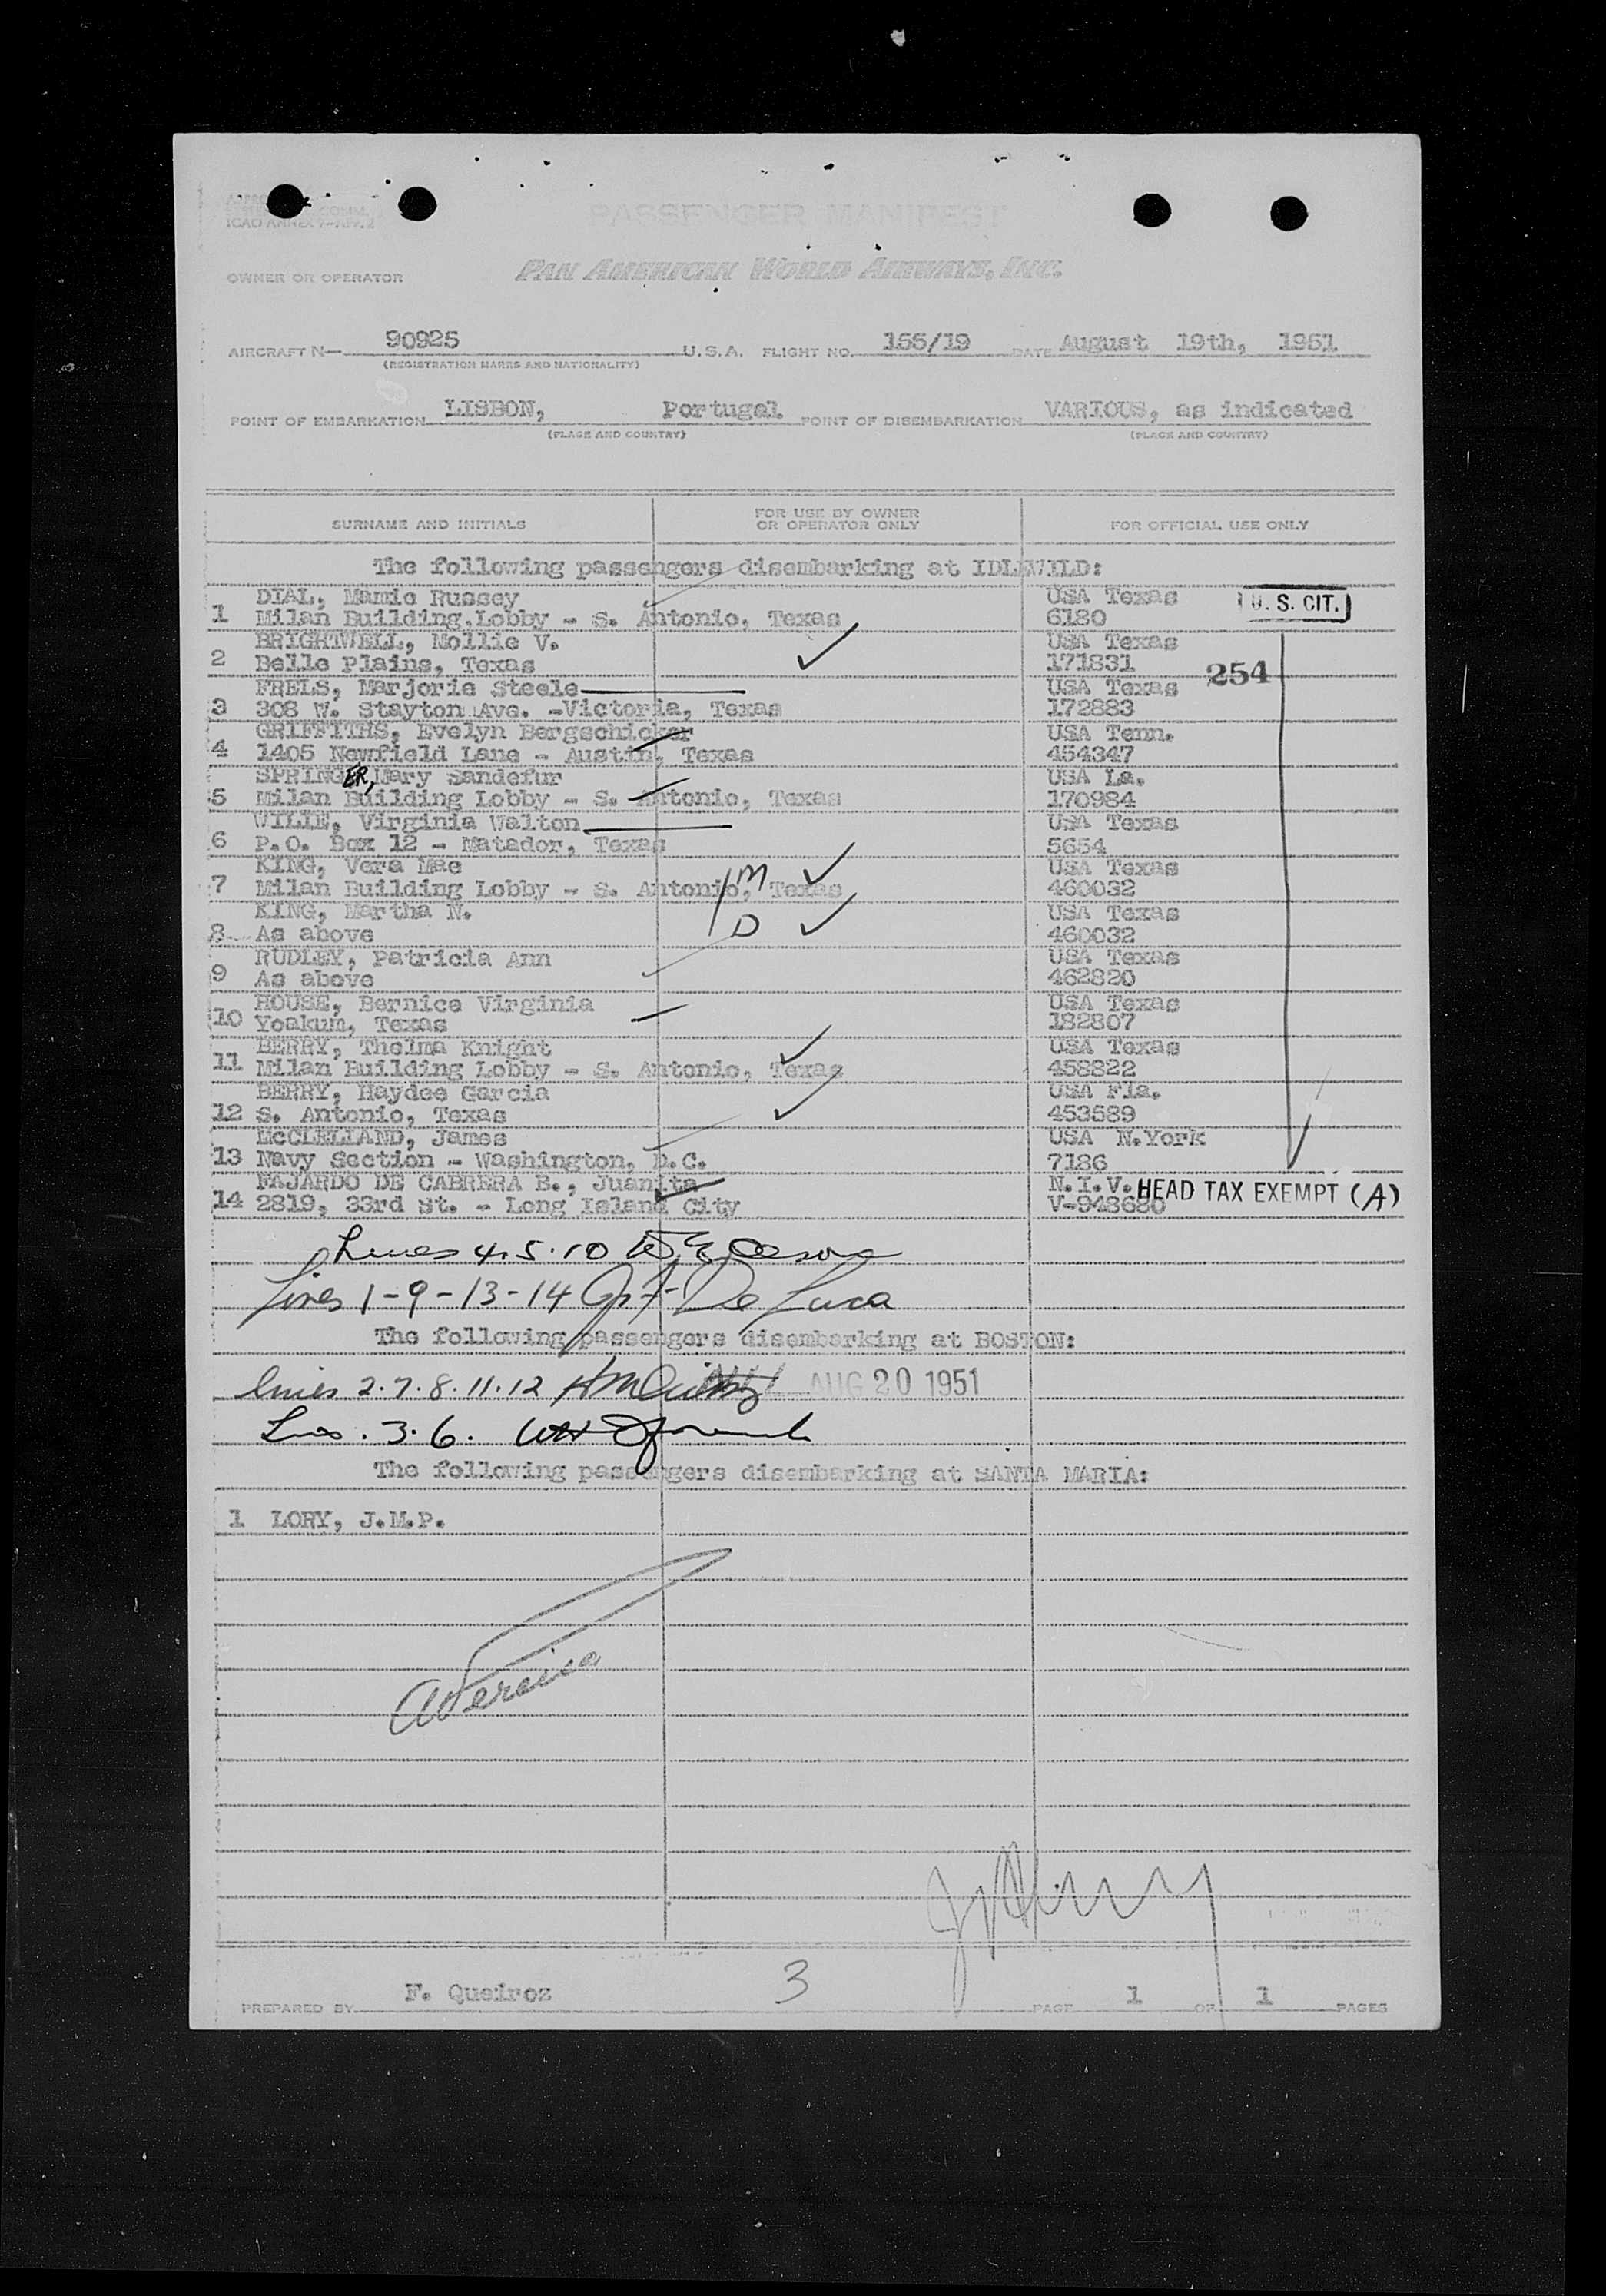 ICAO ANNEX 9-
PASSENGER MANIFEST
OWNER OR OPERATOR PAN AMERICAN WORLD AIRWAYS, INC.
AIRCRAFT N— 90925 U.S.A. FLIGHT NO. 155/19 DATE August 19th, 1951
(REGISTRATION MARKS AND NATIONALITY)
POINT OF EMBARKATION LISBON, Portugal POINT OF DISEMBARKATION VARIOUS, as indicated
(PLACE AND COUNTRY) (PLACE AND COUNTRY)
SURNAME AND INITIALS FOR USE BY OWNER OR OPERATOR ONLY FOR OFFICIAL USE ONLY
The following passengers disembarking at IDLEWILD:
DIAL, Mamie Russey USA Texas U. S. CIT.
1 Milan Building.Lobby - S. Antonio, Texas 6180
BRIGHTWELL, Mollie V. USA Texas
2 Belle Plains, Texas 171831 254
FRELS, Marjorie Steele USA Texas
3 308 W. Stayton Ave. -Victoria, Texas 172883
GRIFFITHS, Evelyn Bergschicker USA Tenn.
4 1405 Newfield Lane - Austin, Texas 454347
SPRINGER, Mary Sandefur USA La.
5 Milan Building Lobby - S. Antonio, Texas 170984
WILIE, Virginia Walton USA Texas
6 P.O. Box 12 - Matador, Texas 5654
KING, Vera Mae USA Texas
7 Milan Building Lobby - S. Antonio, Texas M 460032
KING, Martha N. USA Texas
8 As above D 460032
RUDLEY, Patricia Ann USA Texas
9 As above 462820
HOUSE, Bernice Virginia USA Texas
10 Yoakum, Texas 182807
BERRY, Thelma Knight USA Texas
11 Milan Building Lobby - S. Antonio, Texas 458822
BERRY, Haydee Garcia USA Fla.
12 S. Antonio, Texas 453589
McCLELLAND, James USA N.York
13 Navy Section - Washington, D.C. 7186
FAJARDO DE CABRERA B., Juanita N.I.V. HEAD TAX EXEMPT (A)
14 2819, 33rd St. - Long Island City V-948680
Lines 4.5.10
Lines 1-9-13-14 De Luca
The following passengers disembarking at BOSTON:
Lines 2.7.8.11.12 AUG 20 1951
Lines 3.6.
The following passengers disembarking at SANTA MARIA:
1 LORY, J.M.P.
PREPARED BY F. Queiroz 3 PAGE 1 OF 1 PAGES